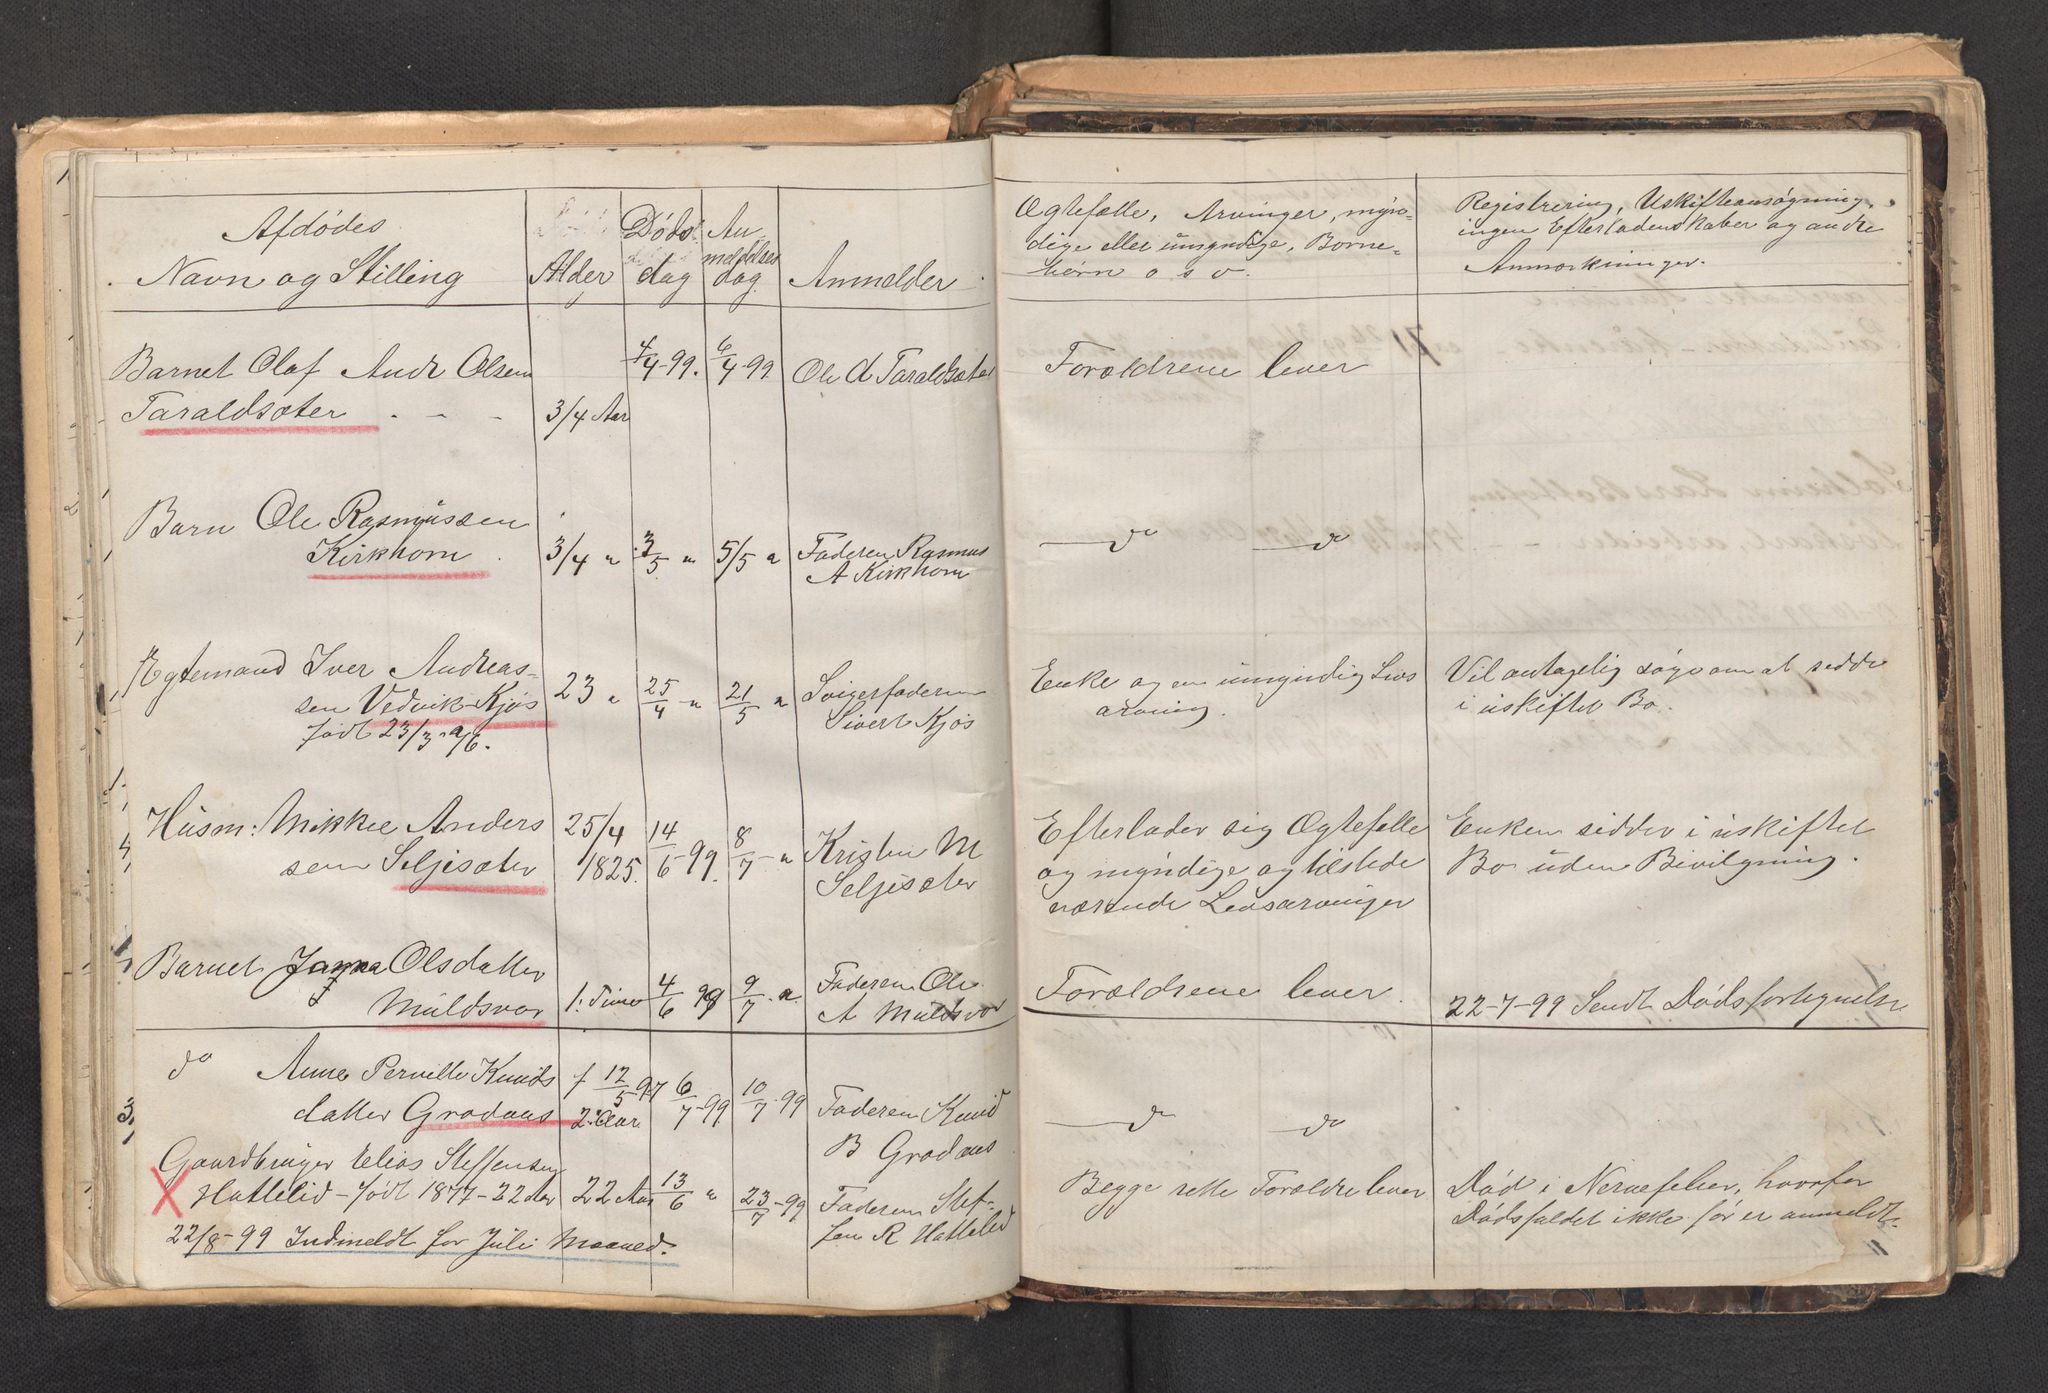 Afdødes
Navn og Stilling
Alder
Døds
dag
An
meldelses
dag.
Anmelder
Barnet Olaf Andr Olsen
Taraldsæter - - -
3/4 Aar
4/4-99.
6/4-99
Ole A Taraldsæter
Barn Ole Rasmussen
Kirkhorn
3/4 "
3/5 "
5/5 "
Faderen Rasmus
A Kirkhorn
Ægtemand Iver Andreas-
sen Vedvik-Kjøs
født 23/3
23 "
25/4 - "
21/5 "
Svigerfaderen
Sivert Kjøs
Husm: Mikkel Anders
sen Seljesæter
25/4
1825.
14/6-99.
8/7- "
Kristen M
Seljesæter
Barnet Olsdatter
Muldsvor
1. Time
4/6 99
9/7. "
Faderen Ole
A Muldsvor
do Anne Pernille Knuds
datter Grodaas
f 12/5-97
2. Aar
6/7-99
10/7-99
Faderen Knud
B Grodaas
Gaardbruger Elias Steffensen
X Hattelid - født 1877 - 22 Aar
22 Aar
13/6 "
23/7-99
Faderen Stef-
fen R Hattelid
22/8-99 Indmeldt for Juli Maaned.
Ægtefælle, Arvinger, myn-
dige eller umyndige, Børne-
børn o s v.
Registrering, Uskifteansøgning,
ingen Efterladenskaber og andre
Anmærkninger.
Forældrene lever
do do
Enke og en umyndig Livs
arving.
Vil antagelig søge om at sidde
i uskiftet Bo.
Efterlader sig Ægtefælle
og myndige og tilstede
værende Livsarvinger
Enken sidder i uskiftet
Bo uden Bevilgning.
Forældrene lever.
22-7-99 Sendt Dødsfortegnelse
do do
Begge rette Forældre lever
Død i Nervefeber, hvorfor
Dødsfaldet ikke før er anmeldt.